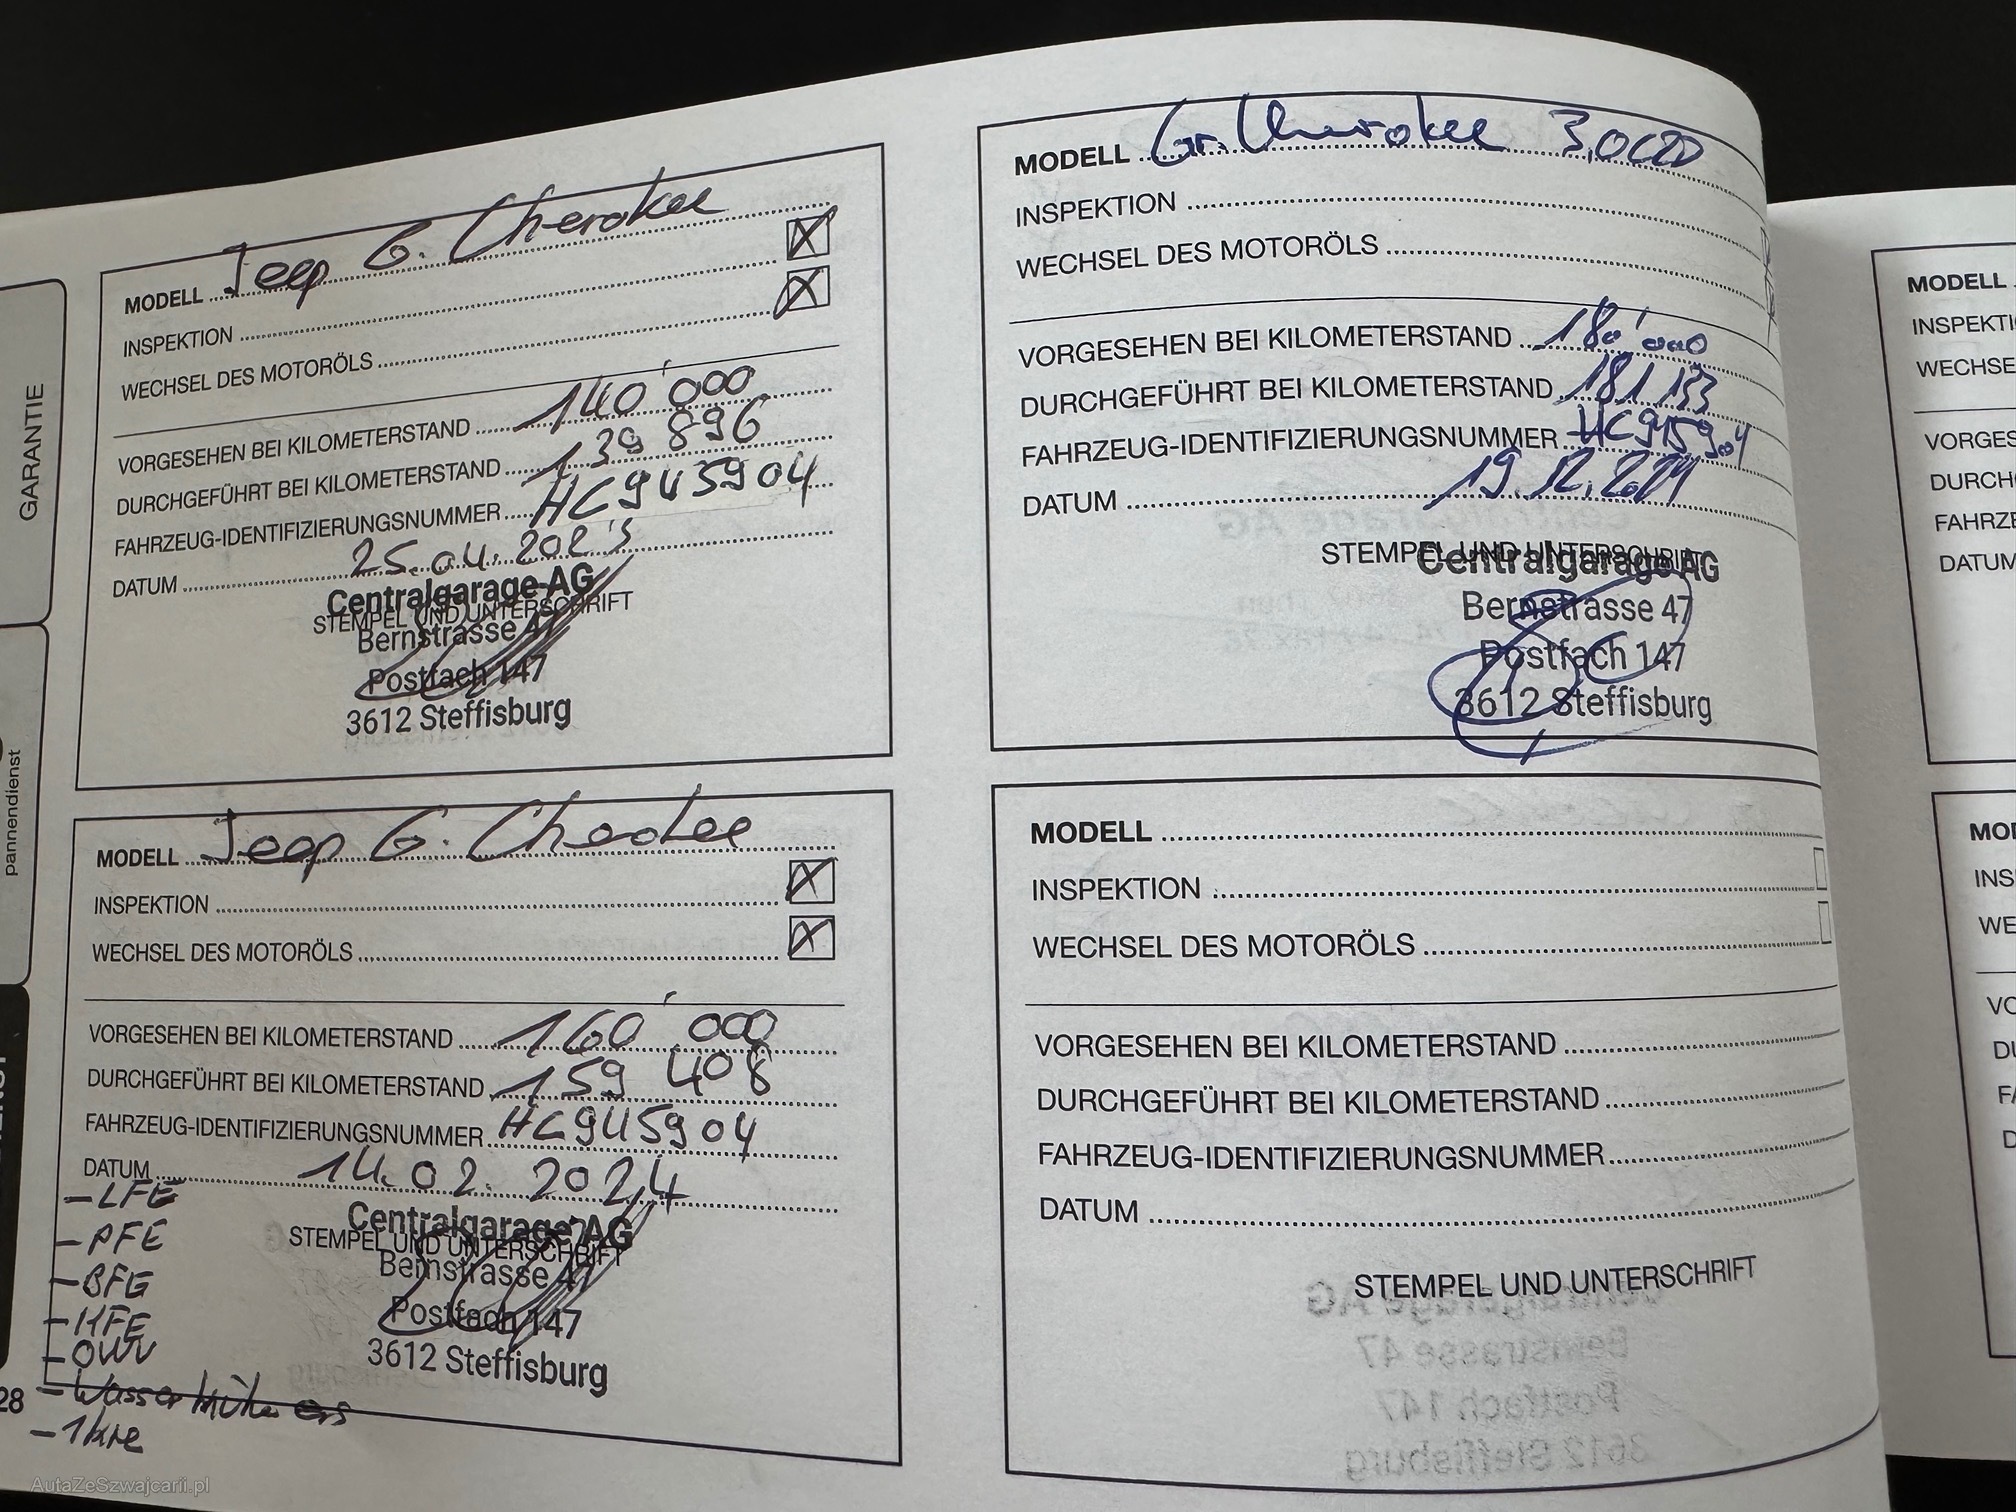 GARANTIE
pannendienst
28
MODELL Jeep G. Cherokee
INSPEKTION
WECHSEL DES MOTORÖLS
VORGESEHEN BEI KILOMETERSTAND 140'000
DURCHGEFÜHRT BEI KILOMETERSTAND 139 896
FAHRZEUG-IDENTIFIZIERUNGSNUMMER HC945904
DATUM 25.04.2023
Centralgarage AG
STEMPEL UND UNTERSCHRIFT
Bernstrasse 47
Postfach 147
3612 Steffisburg
MODELL Jeep G. Cherokee
INSPEKTION
WECHSEL DES MOTORÖLS
VORGESEHEN BEI KILOMETERSTAND 160'000
DURCHGEFÜHRT BEI KILOMETERSTAND 159 408
FAHRZEUG-IDENTIFIZIERUNGSNUMMER HC945904
DATUM 14.02.2024
- LFE
- PFE
- BFE
- KFE
- OWV
- 1kre
Centralgarage AG
STEMPEL UND UNTERSCHRIFT
Bernstrasse 47
Postfach 147
3612 Steffisburg
MODELL Gr. Cherokee 3,0CRD
INSPEKTION
WECHSEL DES MOTORÖLS
VORGESEHEN BEI KILOMETERSTAND 180'000
DURCHGEFÜHRT BEI KILOMETERSTAND 181133
FAHRZEUG-IDENTIFIZIERUNGSNUMMER HC945904
DATUM 19.12.2024
STEMPEL UND UNTERSCHRIFT
Centralgarage AG
Bernstrasse 47
Postfach 147
3612 Steffisburg
MODELL
INSPEKTION
WECHSEL DES MOTORÖLS
VORGESEHEN BEI KILOMETERSTAND
DURCHGEFÜHRT BEI KILOMETERSTAND
FAHRZEUG-IDENTIFIZIERUNGSNUMMER
DATUM
STEMPEL UND UNTERSCHRIFT
MODELL
INSPEKTI
WECHSE
VORGES
DURCH
FAHRZE
DATUM
MO
INS
WE
VO
DU
FA
D
AutaZeSzwajcarii.pl